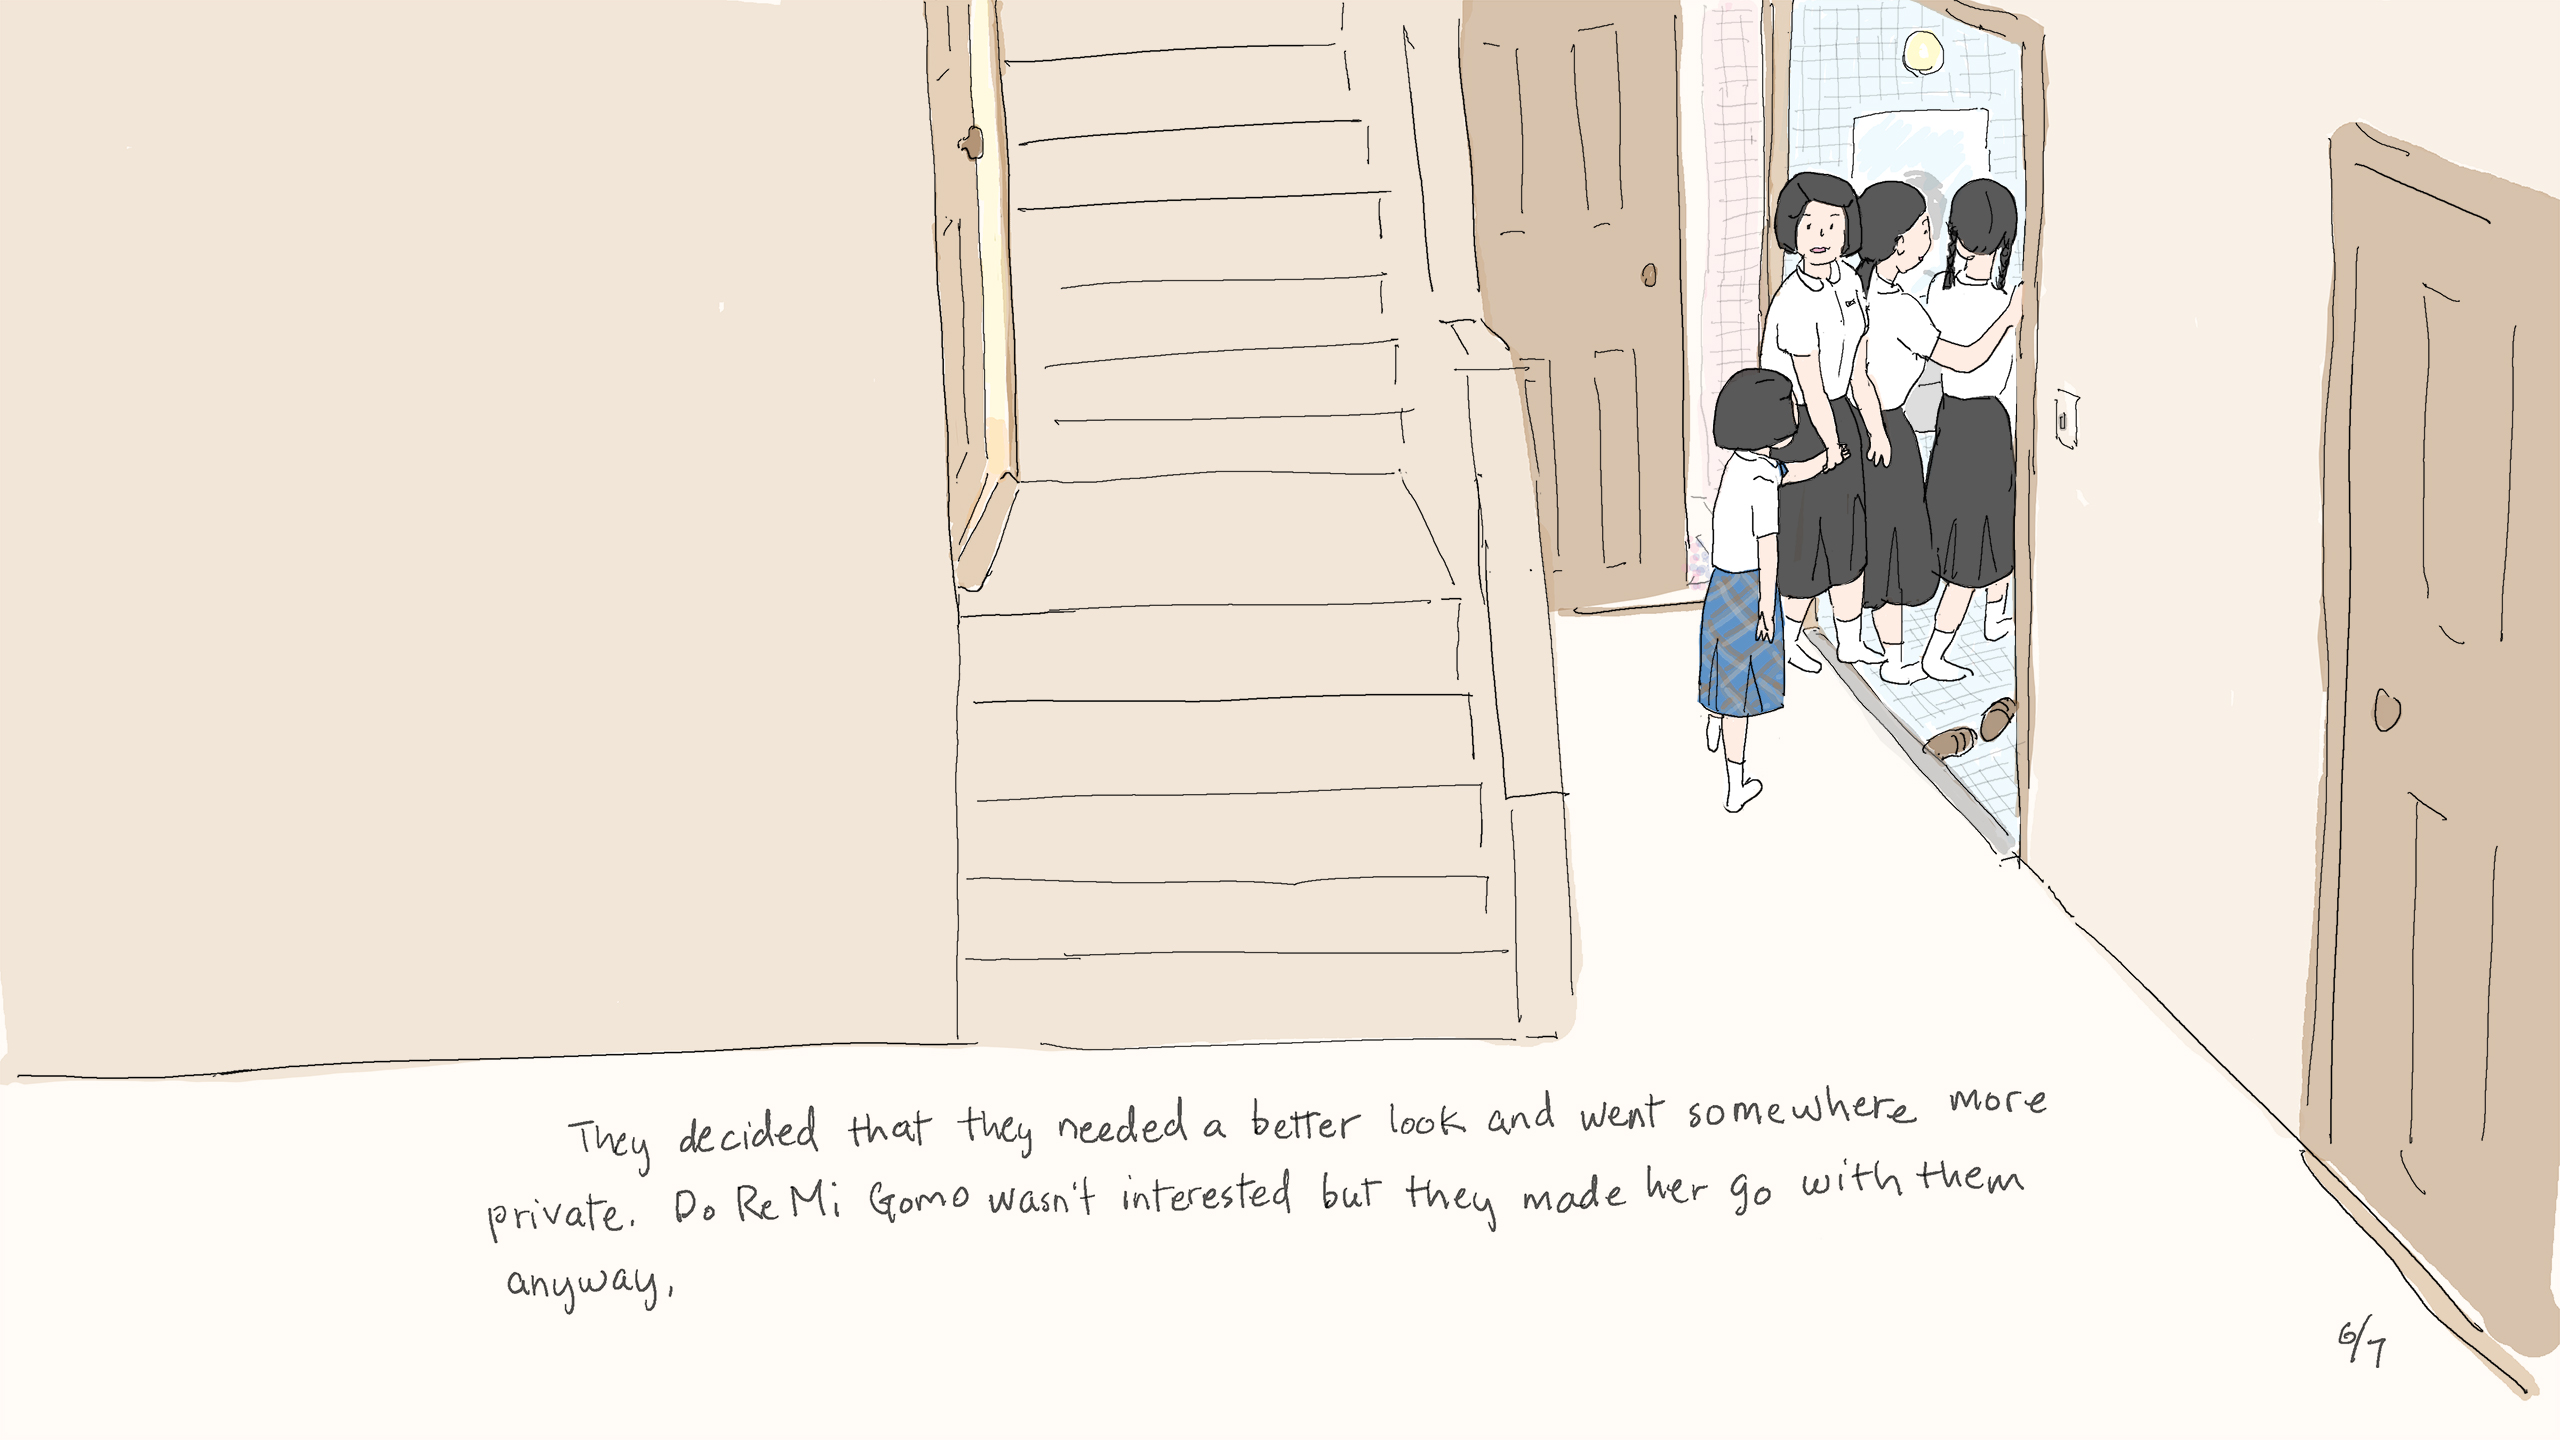 They decided that they needed a better look and went somewhere more
private. Do Re Mi Gomo wasn't interested but they made her go with them
anyway.
6/7